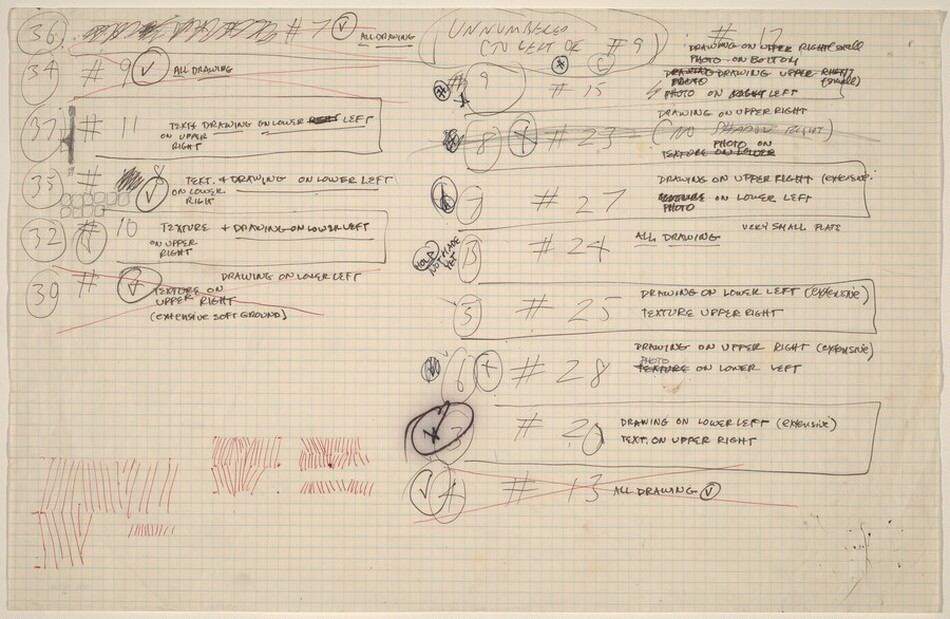 36 # 7 ALL DRAWING
34 # 9 ALL DRAWING
37 # 11 TEXT & DRAWING ON LOWER LEFT
ON UPPER
RIGHT
35 # 8 TEXT. & DRAWING ON LOWER LEFT
ON LOWER
RIGHT
32 # 10 TEXTURE + DRAWING ON LOWER LEFT
ON UPPER
RIGHT
39 # DRAWING ON LOWER LEFT
TEXTURE ON
UPPER RIGHT
(EXTENSIVE SOFT GROUND)
UNNUMBERED
LEFT OF # 9
# 17
DRAWING ON UPPER RIGHT (small
PHOTO ON BOTTOM
9 # 15 DRAWING DRAWING UPPER RIGHT
PHOTO (small)
PHOTO ON RIGHT LEFT
DRAWING ON UPPER RIGHT
8 # 23 (NO SHADOW RIGHT)
PHOTO ON
TEXTURE ON LOWER
7 # 27 DRAWING ON UPPER RIGHT (extensive)
TEXTURE ON LOWER LEFT
PHOTO
VERY SMALL PLATE
HOLD NOT MADE YET
# 24 ALL DRAWING
5 # 25 DRAWING ON LOWER LEFT (extensive)
TEXTURE UPPER RIGHT
DRAWING ON UPPER RIGHT (extensive)
PHOTO
6 # 28 TEXTURE ON LOWER LEFT
3 # 20 DRAWING ON LOWER LEFT (extensive)
TEXT. ON UPPER RIGHT
4 # 13 ALL DRAWING